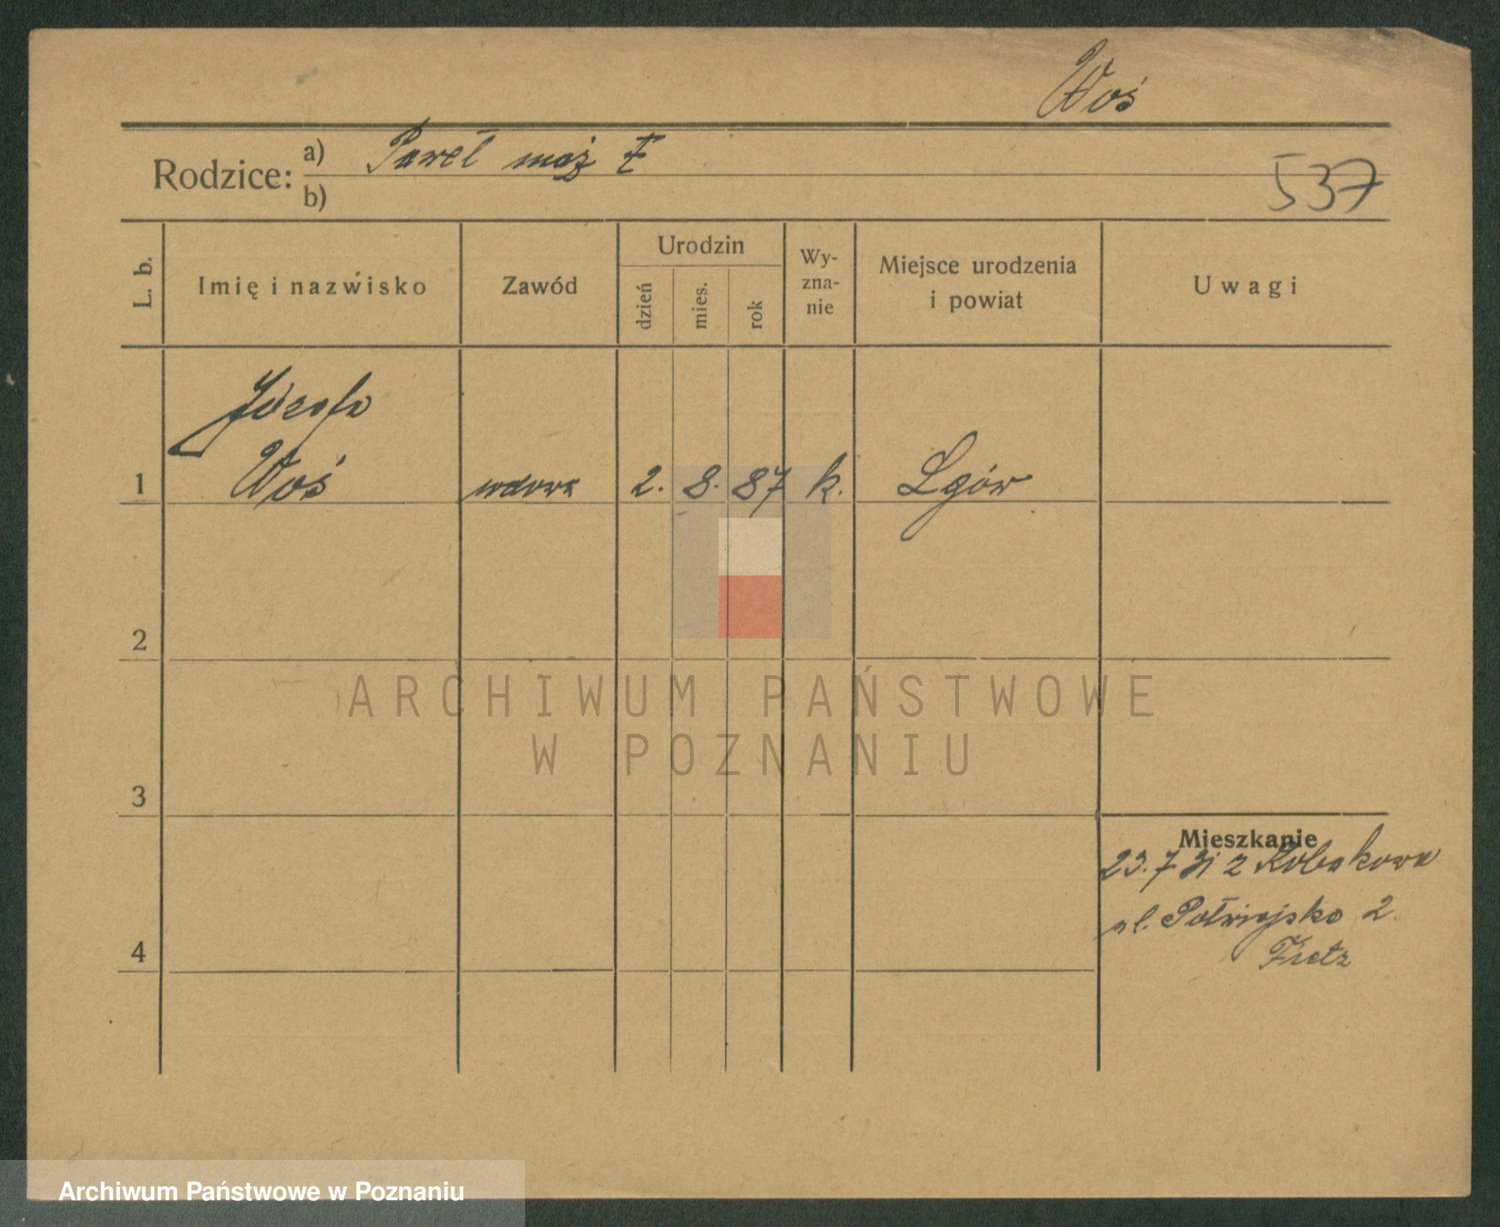 Woś
Rodzice: a) Paweł mąż
b)
537
L. b.
Imię i nazwisko
Zawód
Urodzin
dzień
mies.
rok
Wy-
zna-
nie
Miejsce urodzenia
i powiat
Uwagi
Józefa
1 Woś wdowa 2. 8. 87 k. Lgów
2
ARCHIWUM PAŃSTWOWE
W POZNANIU
3
Mieszkanie
23.7.31 z
ul. Półwiejska 2.
4
Archiwum Państwowe w Poznaniu